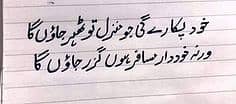 خود پکارے گی جو منزل تو ٹھہر جاؤں گا
ورنہ خوددار مسافر ہوں گزر جاؤں گا